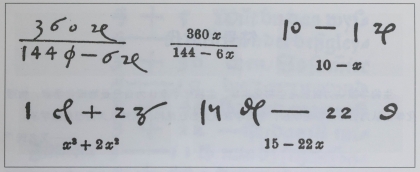 360
144 ϕ – 6
360 x
144 – 6x
10 – 1
10 – x
1 + 2
x³ + 2x²
14 — 22
15 – 22x